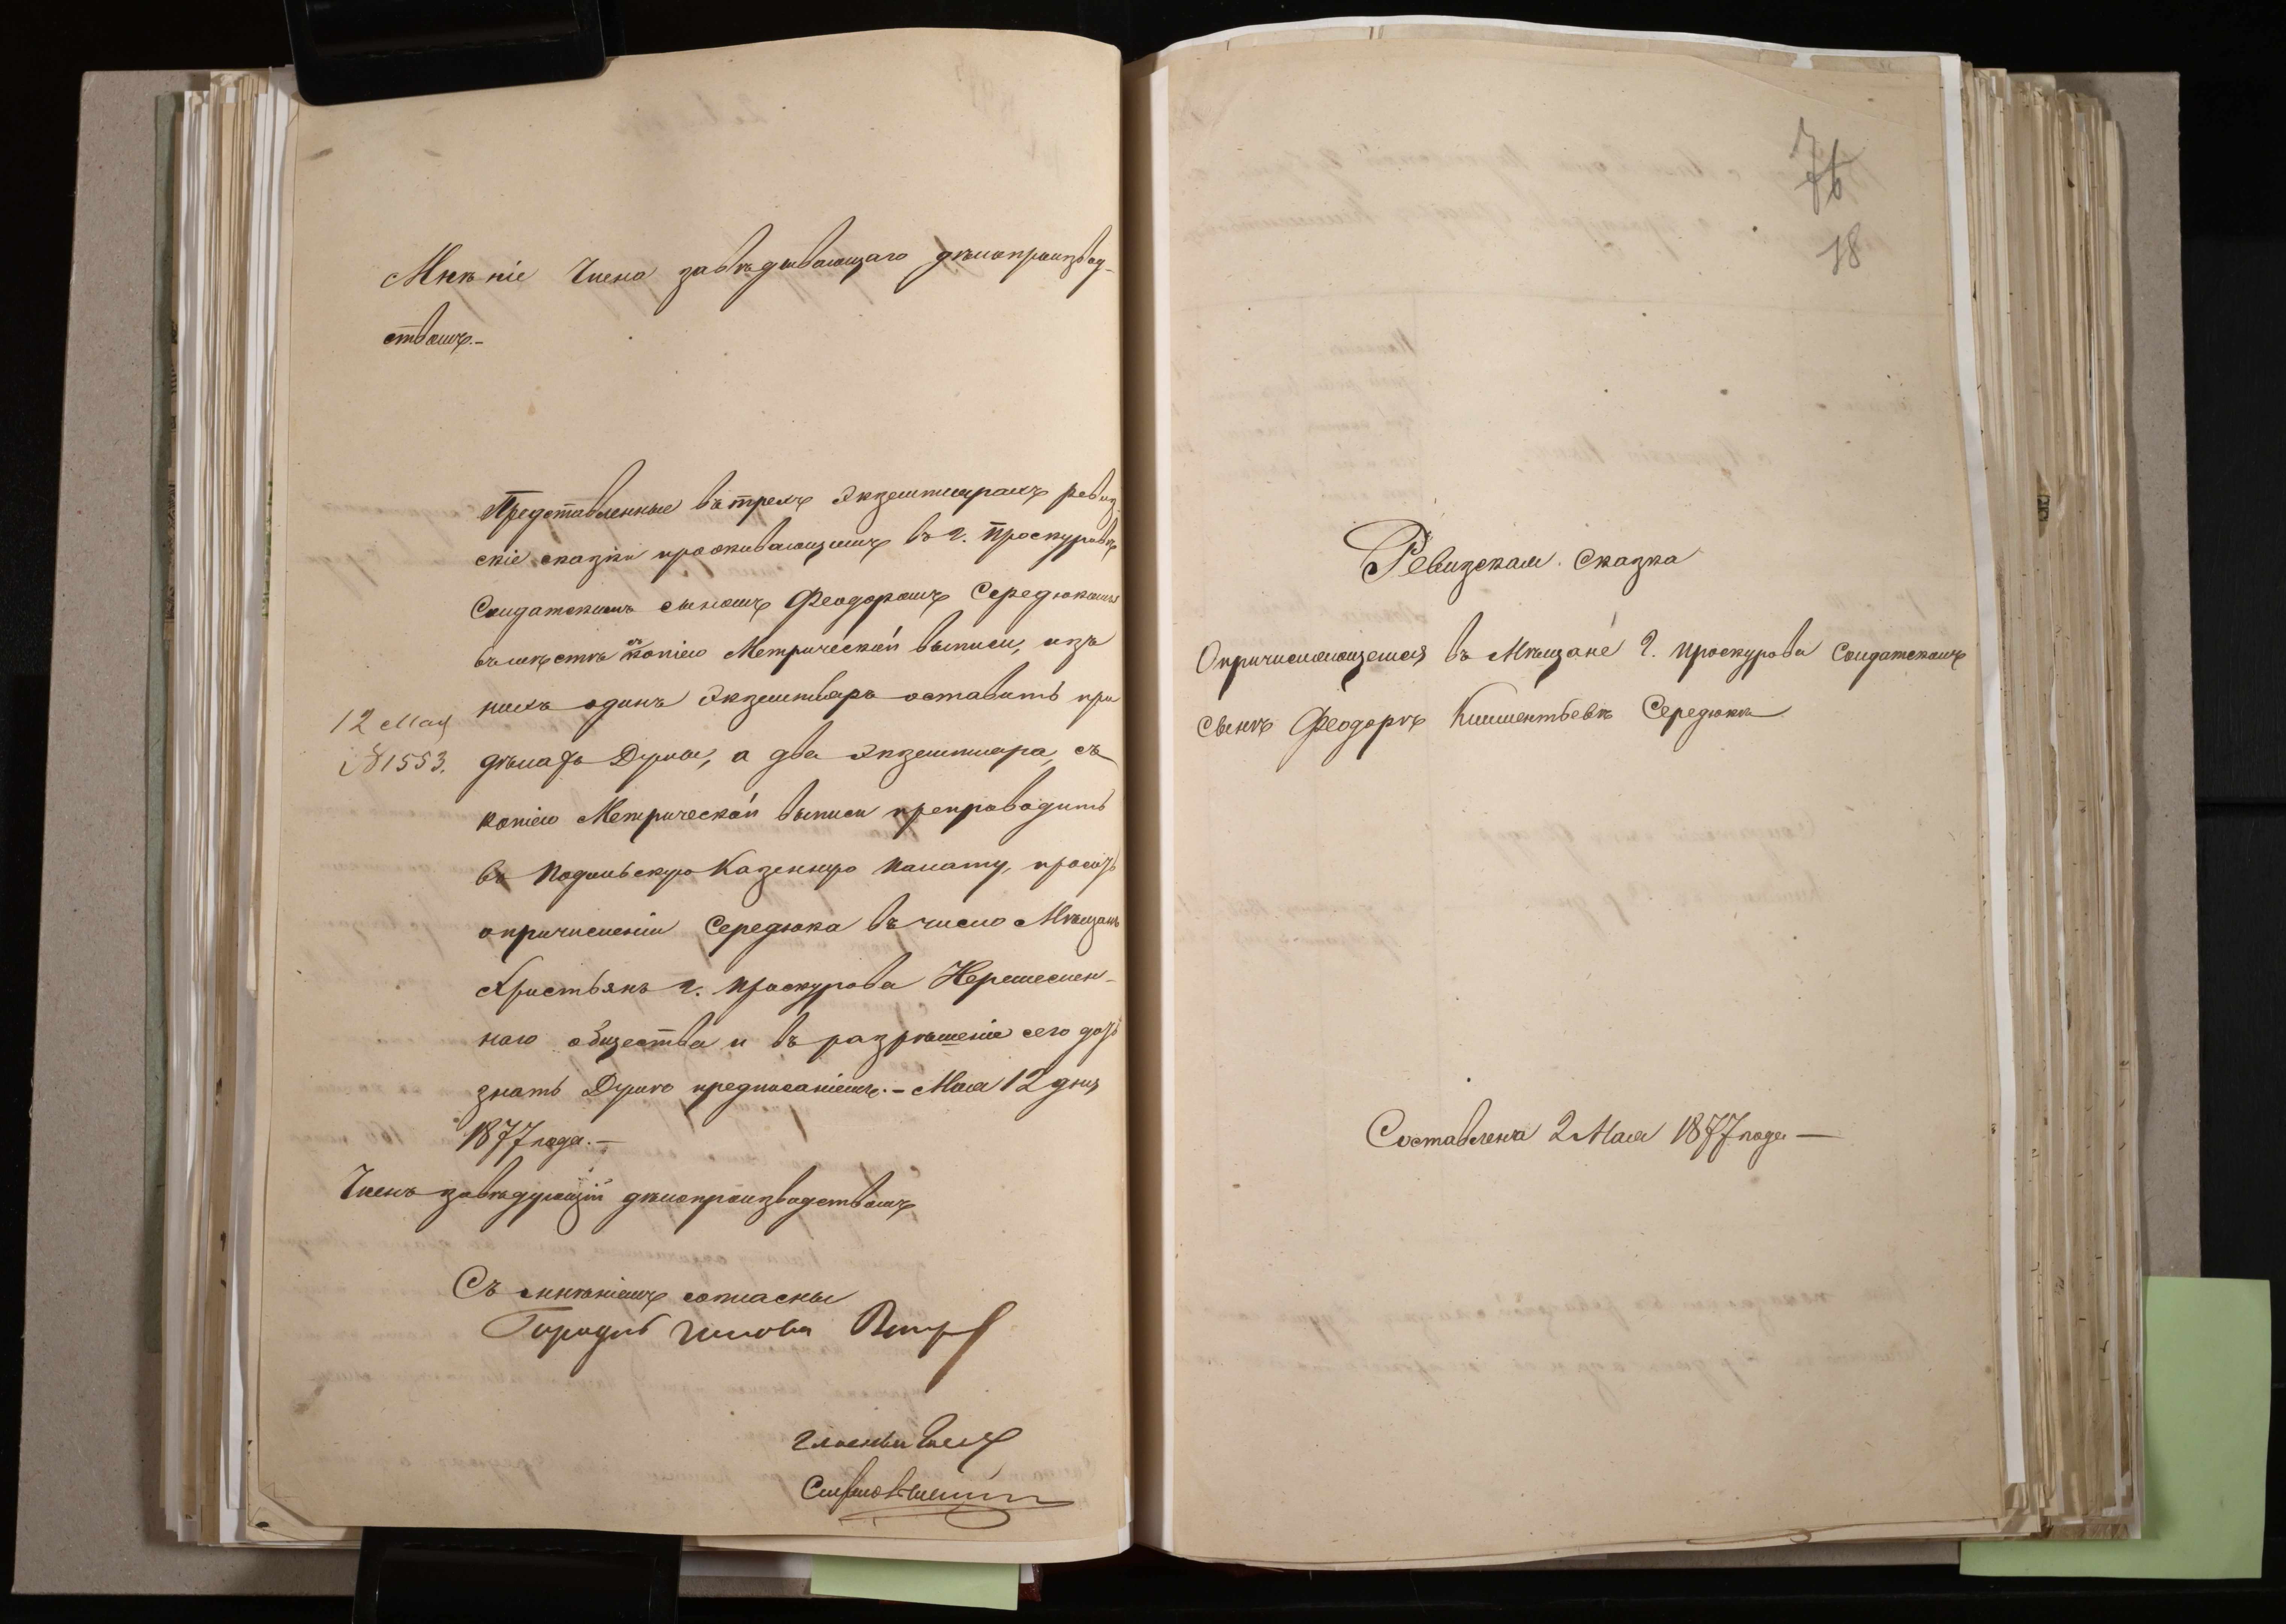 Мнѣніе Члена завѣдывающаго дѣлопроизвод-
ствомъ.-
Представленные въ трехъ экземплярахъ ревиз
скіе сказки проживающимъ въ г. Проскуровѣ
Солдатскимъ сыномъ Феодоромъ Середюкомъ
вмѣстѣ съ копіею Метрической выписи, изъ
нихъ одинъ экземпляръ оставить при
12 Мая
№ 1553.
дѣлахъ Думы, а два экземпляра, съ
копіею Метрической выписи препроводить
въ Подольскую Казенную Палату, прося
о причисленіи Середюка въ число Мѣщанъ
Христьянъ г. Проскурова
наго общества и въ разрѣшеніе сего дать
знать Думѣ предписаніемъ.- Мая 12 дня
1877 года.-
Членъ завѣдующій дѣлопроизводствомъ
Съ мнѣніемъ согласны
Городск Голова
Гласный
76
18
Ревизская сказка
О причисляющемся въ Мѣщане г. Проскурова Солдатскомъ
сынѣ Феодорѣ Климентьевѣ Середюкѣ
Составлена 2 Мая 1877 года —